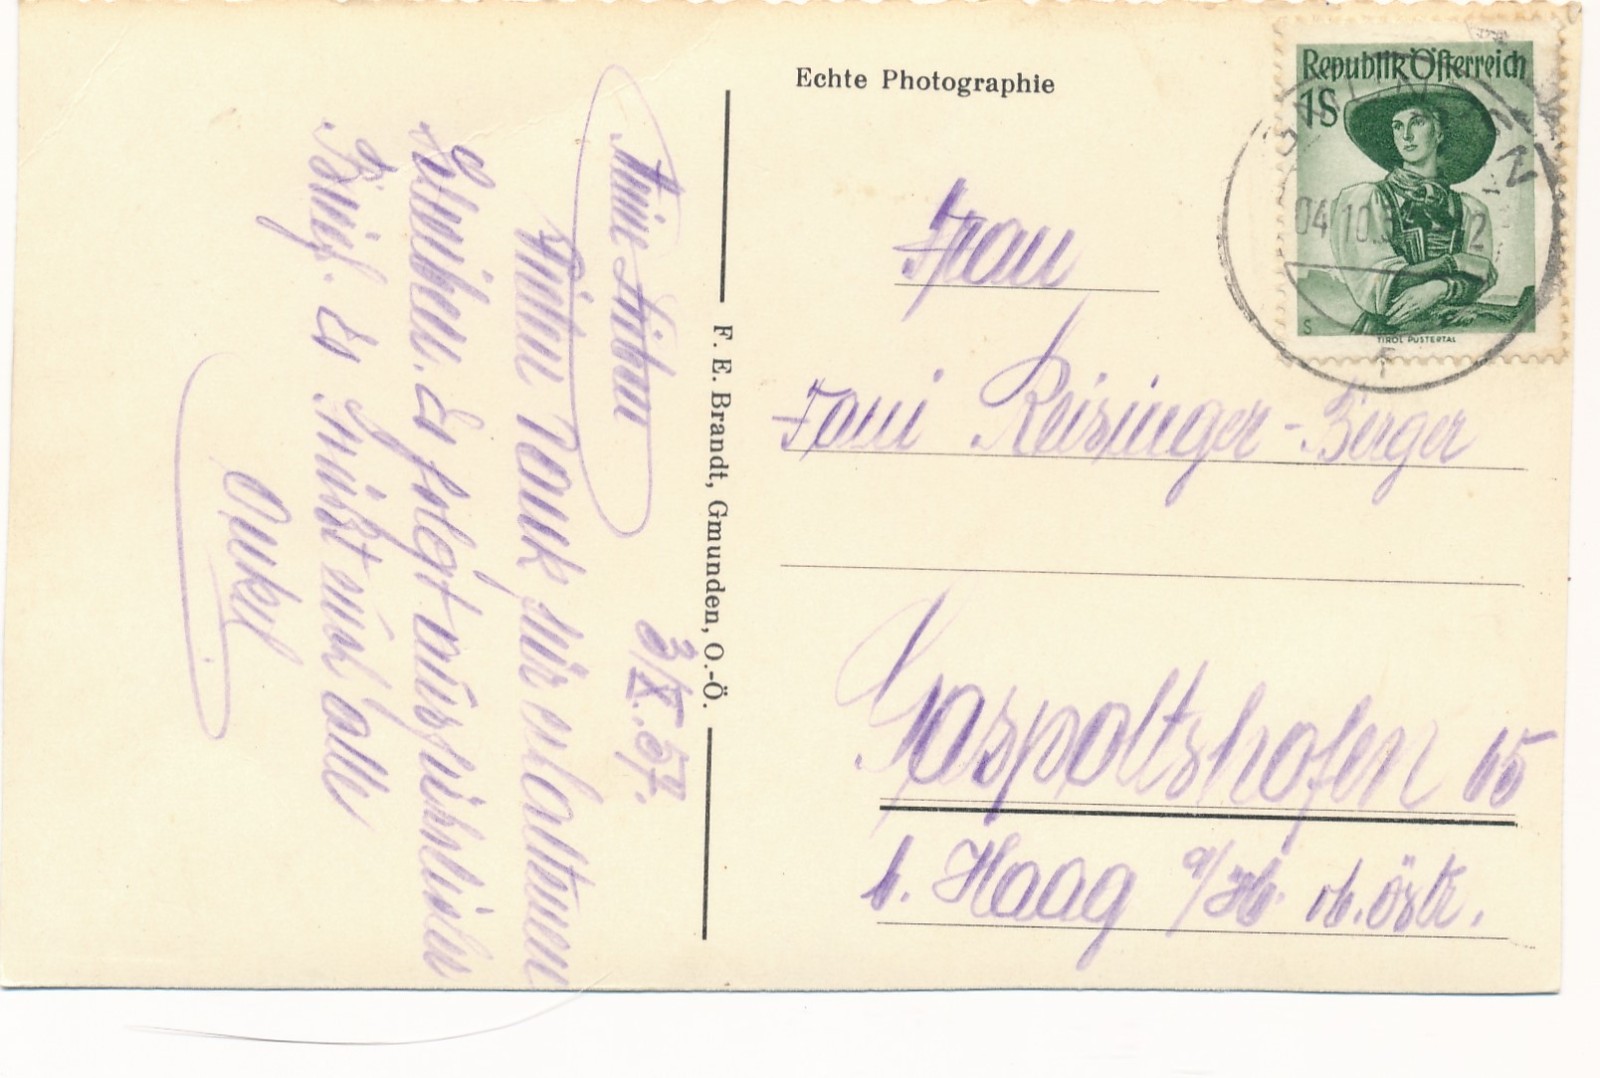 Echte Photographie
Republik Österreich
1S
04.10.5
S
TIROL PUSTERTAL
F. E. Brandt, Gmunden, O.-Ö.
Frau
Fani Reisinger-Berger
Gaspoltshofen 15
b. Haag a/H. ob. östr.
3/X.57.
Meine Lieben
Vielen Dank für erhaltenen
Es folgt ausführlicher
Brief. Es grüßt euch alle
Onkel